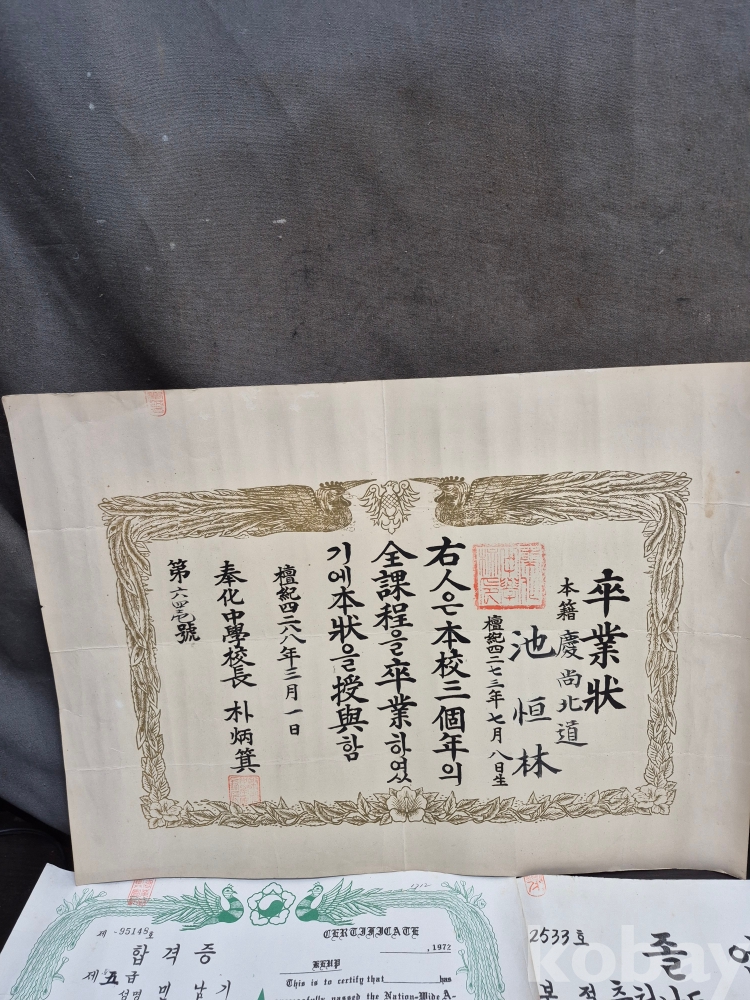 卒業狀
本籍 慶尚北道
池恒林
檀紀四二七三年七月八日生
右人은本校三個年의
全課程을卒業하였
기에本狀을授與함
檀紀四二八八年三月一日
奉化中學校長 朴炳箕
第六四壱號
제 -95148호
합격증
제 五 급
성명 민 남 기
CERTIFICATE
, 1972
KEUP
This is to certify that has
successfully passed the Nation-Wide A-
2533호
졸
본 적
kobay